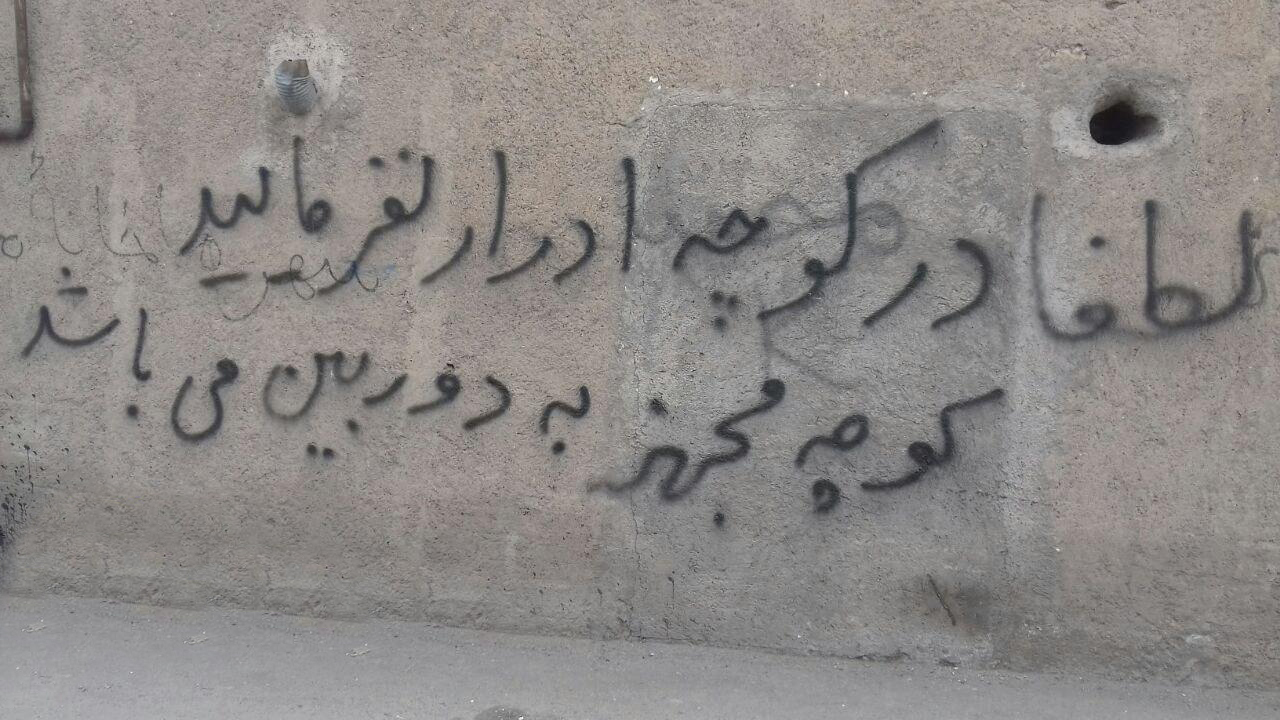 لطفا در کوچه ادرار نفرمائید
کوچه مجهز به دوربین می باشد